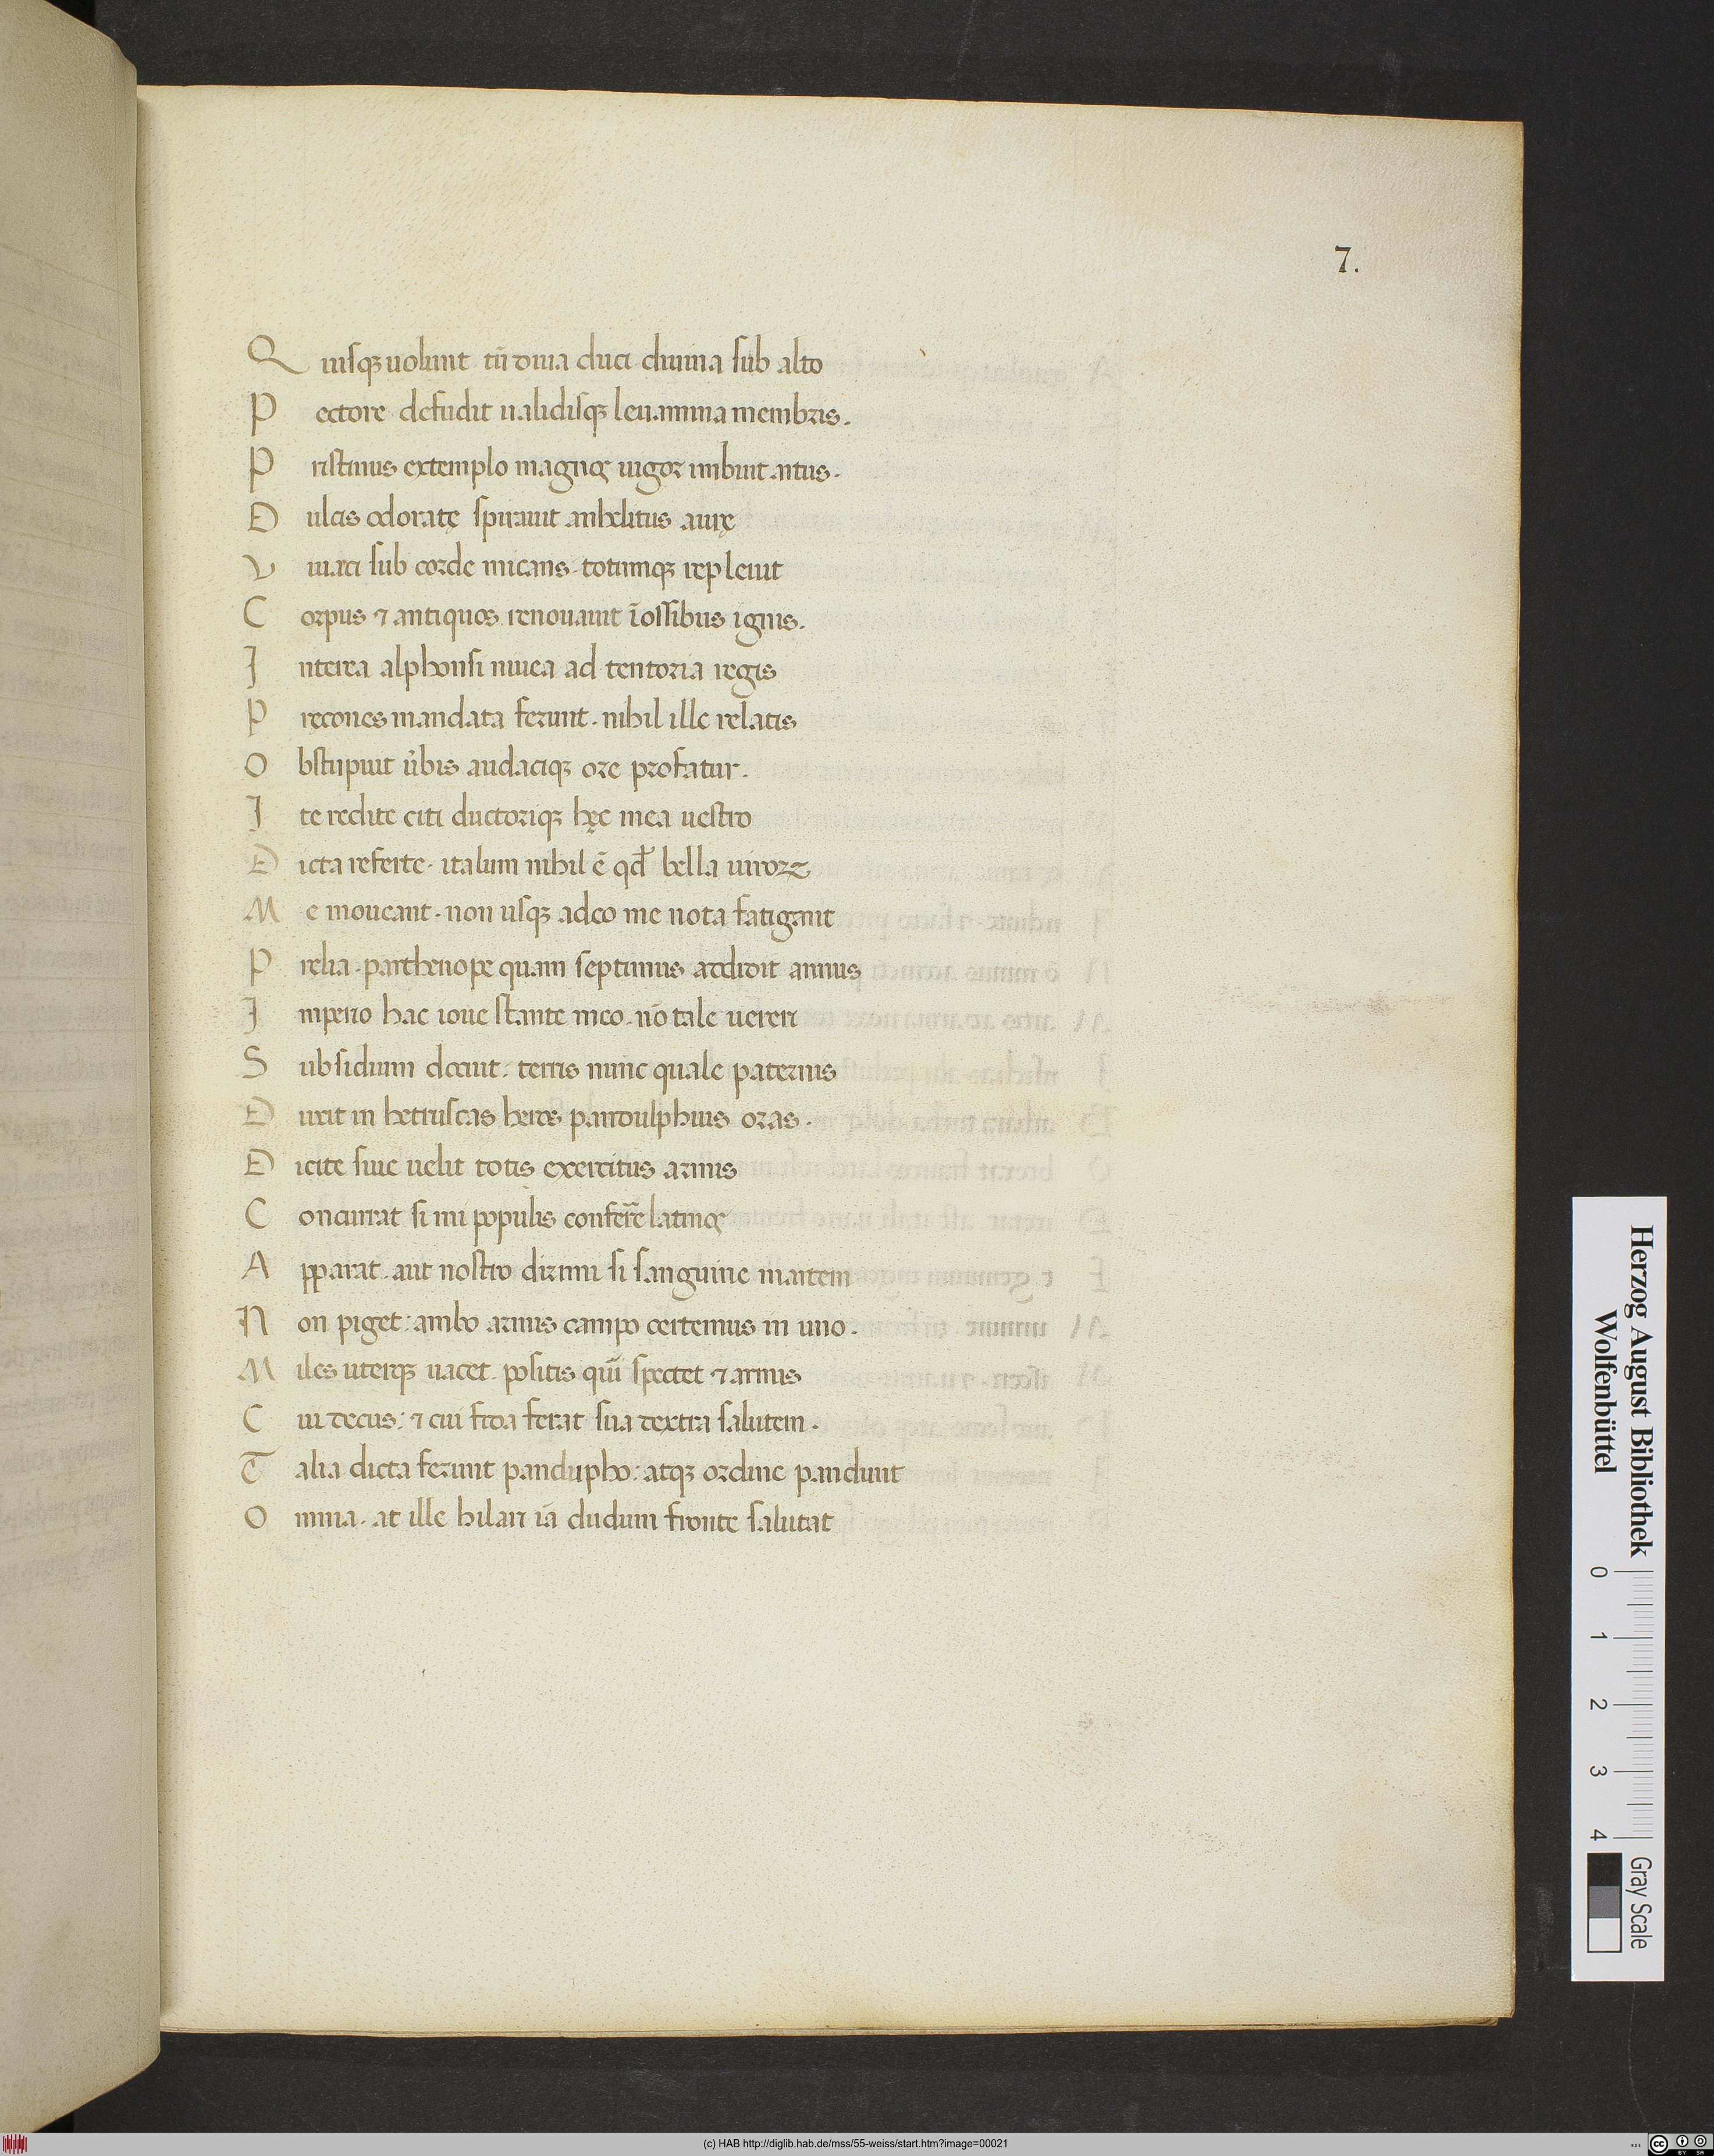 7.
Q uisqȝ uolunt tū dona duci diuina sub alto
P ectore defudit ualidisqȝ leuamina membris.
P ristinus extemplo magnos uigor imbuit artus.
D ulcis odoratę spirauit anhelitus aurę
V iuaci sub corde micans. totumqȝ repleuit
C orpus ⁊ antiquos renouauit ī ossibus ignis.
I nterea alphonsi niuea ad tentoria regis
P recones mandata ferunt. nihil ille relatis
O bstupuit u̓bis audaciqȝ ore profatur.
I te redite citi ductoriqȝ hęc mea uestro
D icta referte. italum nihil ē qđ bella uiroꝝ
M e moueant. non usqȝ adeo me nota fatigant
P relia. parthenope quam septimus addidit annus
I mperio hac ioue stante meo. nō tale uereri
S ubsidium docuit. terris nunc quale paternis
D uxit in hetruscas heros pandulphius oras.
D icite siue uelit totis exercitus armis
C oncurrat si mi populis conferr̄e latinos
A pparat. aut nostro dirimi si sanguine martem
N on piget: ambo armis campo certemus in uno.
M iles uterqȝ uacet. positis qui ī spectet ⁊ armis
C ui decus: ⁊ cui fida ferat sua dextra salutem.
T alia dicta ferunt pandupho: atqȝ ordine pandunt
O mnia. at ille hilari iā dudum fronte salutat
Herzog August Bibliothek
Wolfenbüttel
0 1 2 3 4
Gray Scale
(c) HAB http://diglib.hab.de/mss/55-weiss/start.htm?image=00021